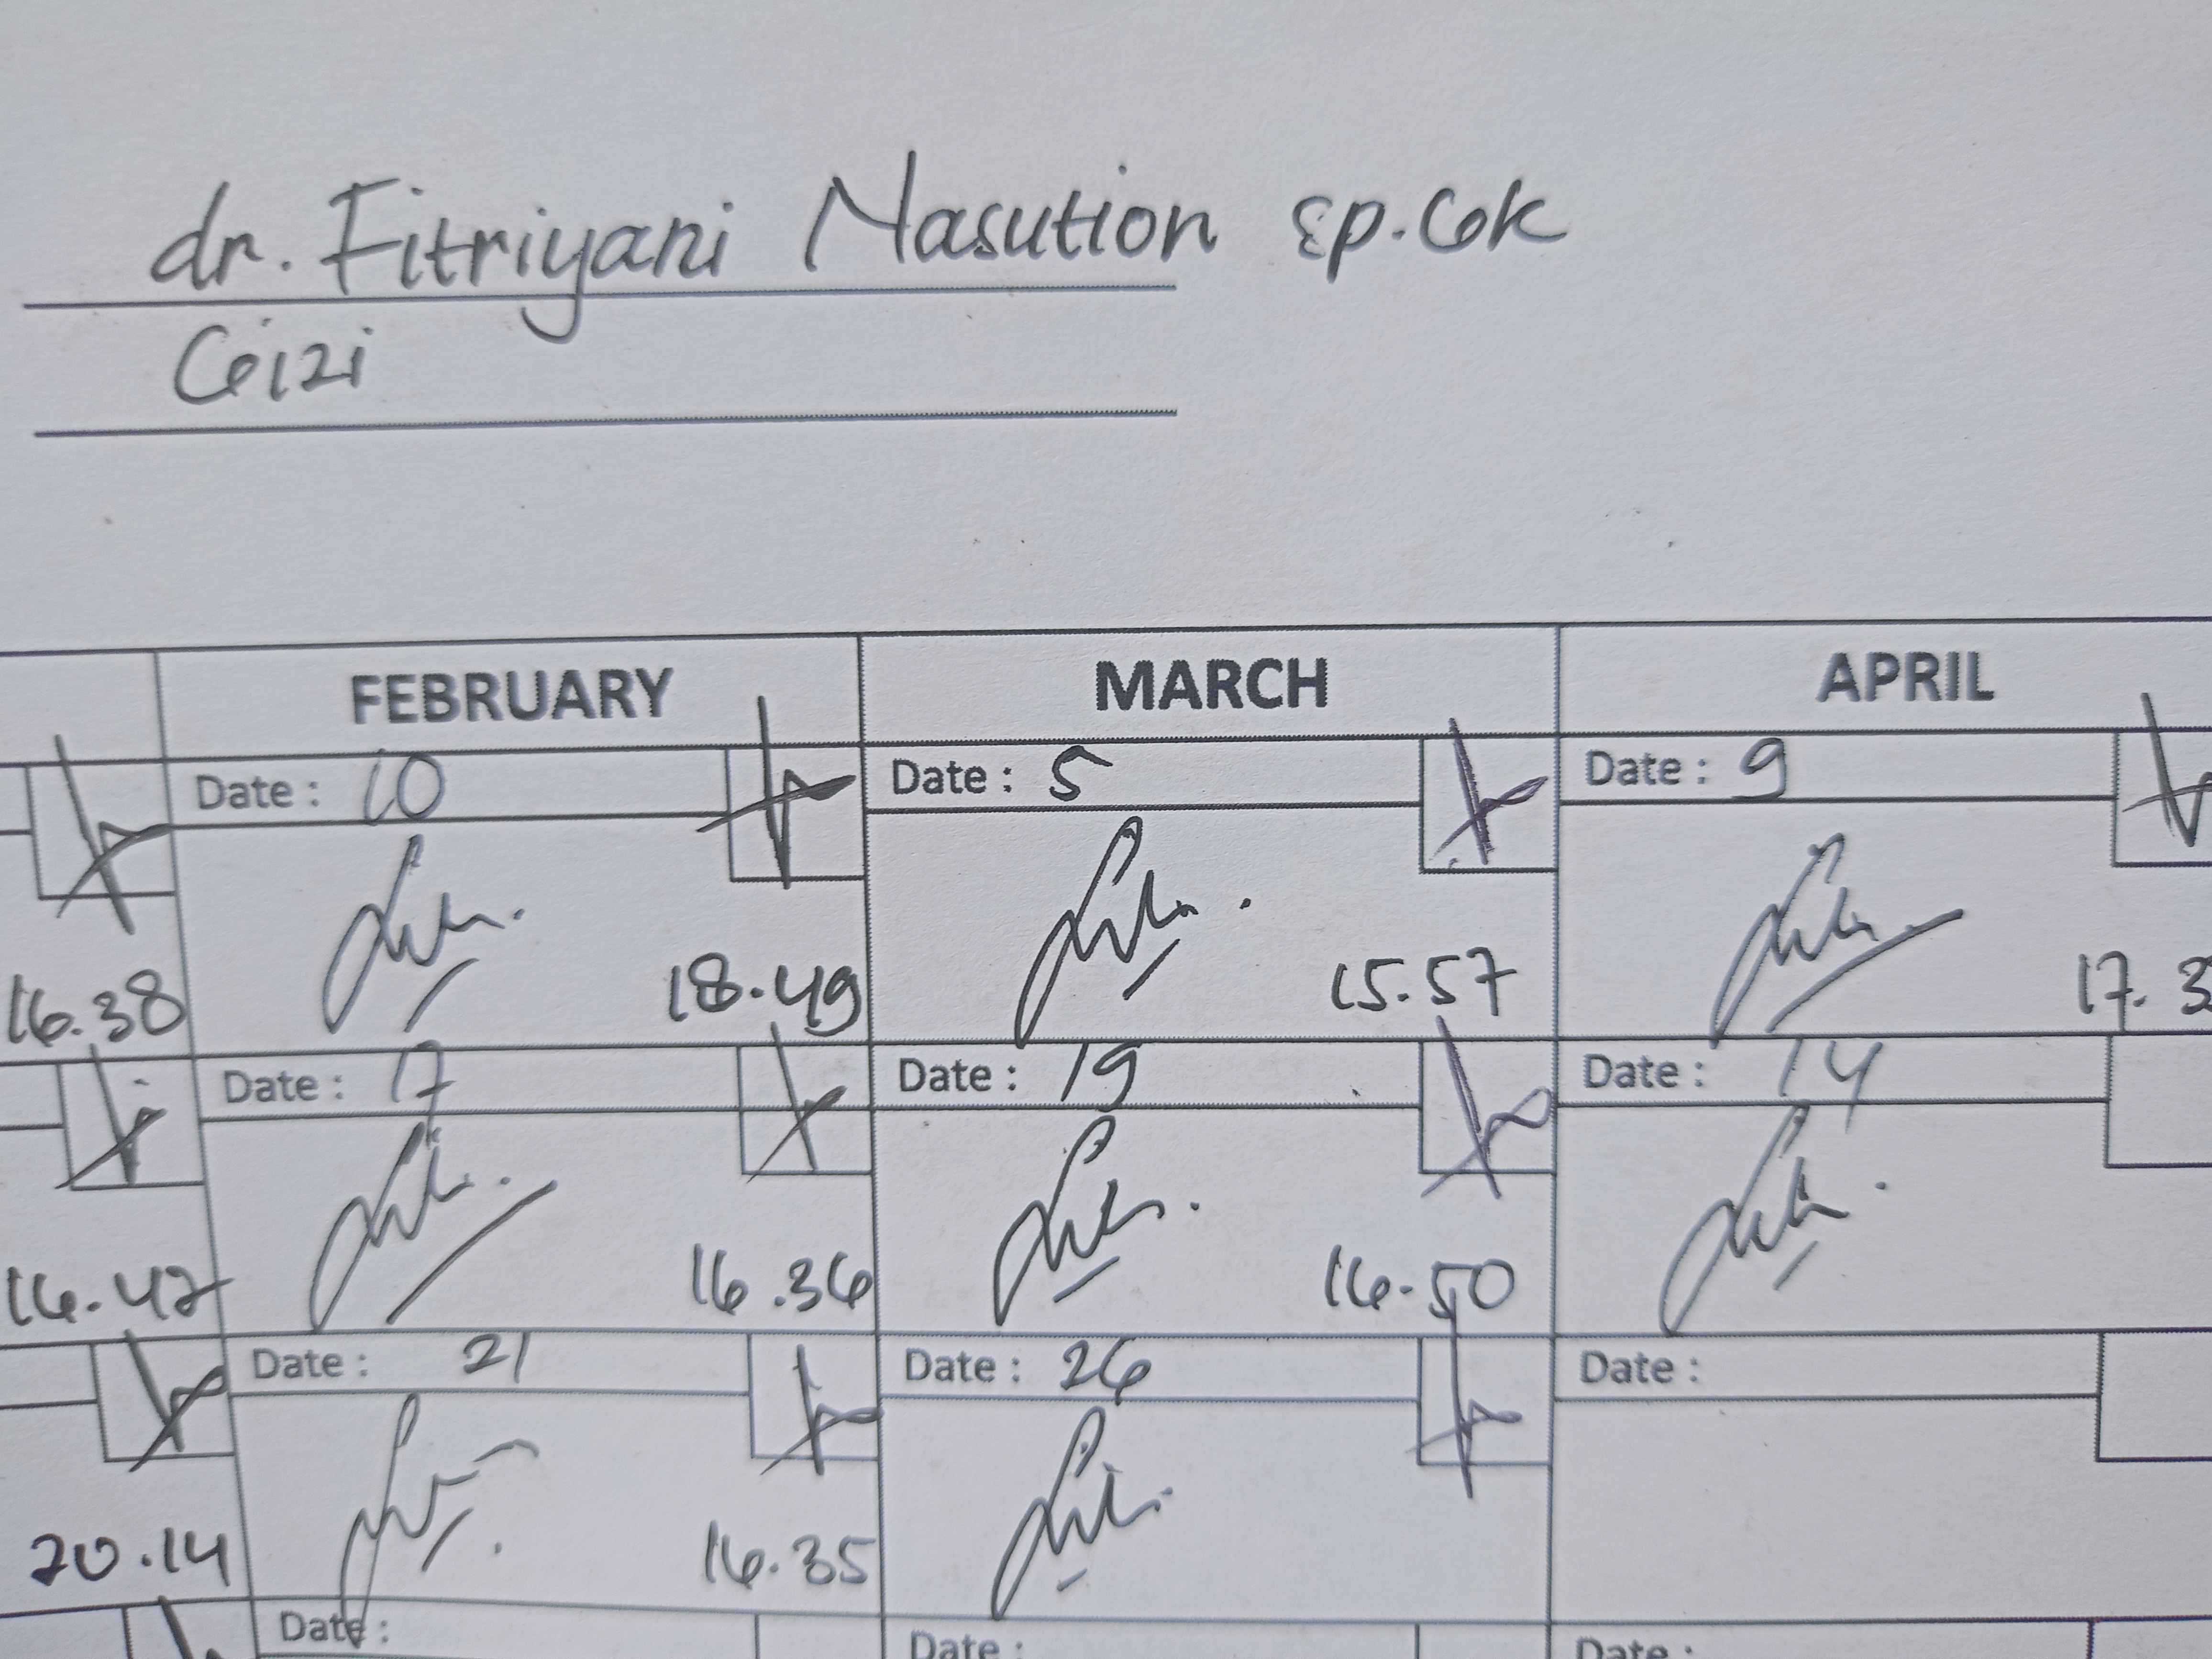 dr. Fitriyani Nasution sp.GK
Gizi
FEBRUARY MARCH APRIL
Date : 10 Date : 5 Date : 9
16.38 18.49 15.57 17.3
Date : 17 Date : 19 Date : 14
16.47 16.36 16.50
Date : 21 Date : 26 Date :
20.14 16.35
Date : Date : Date :